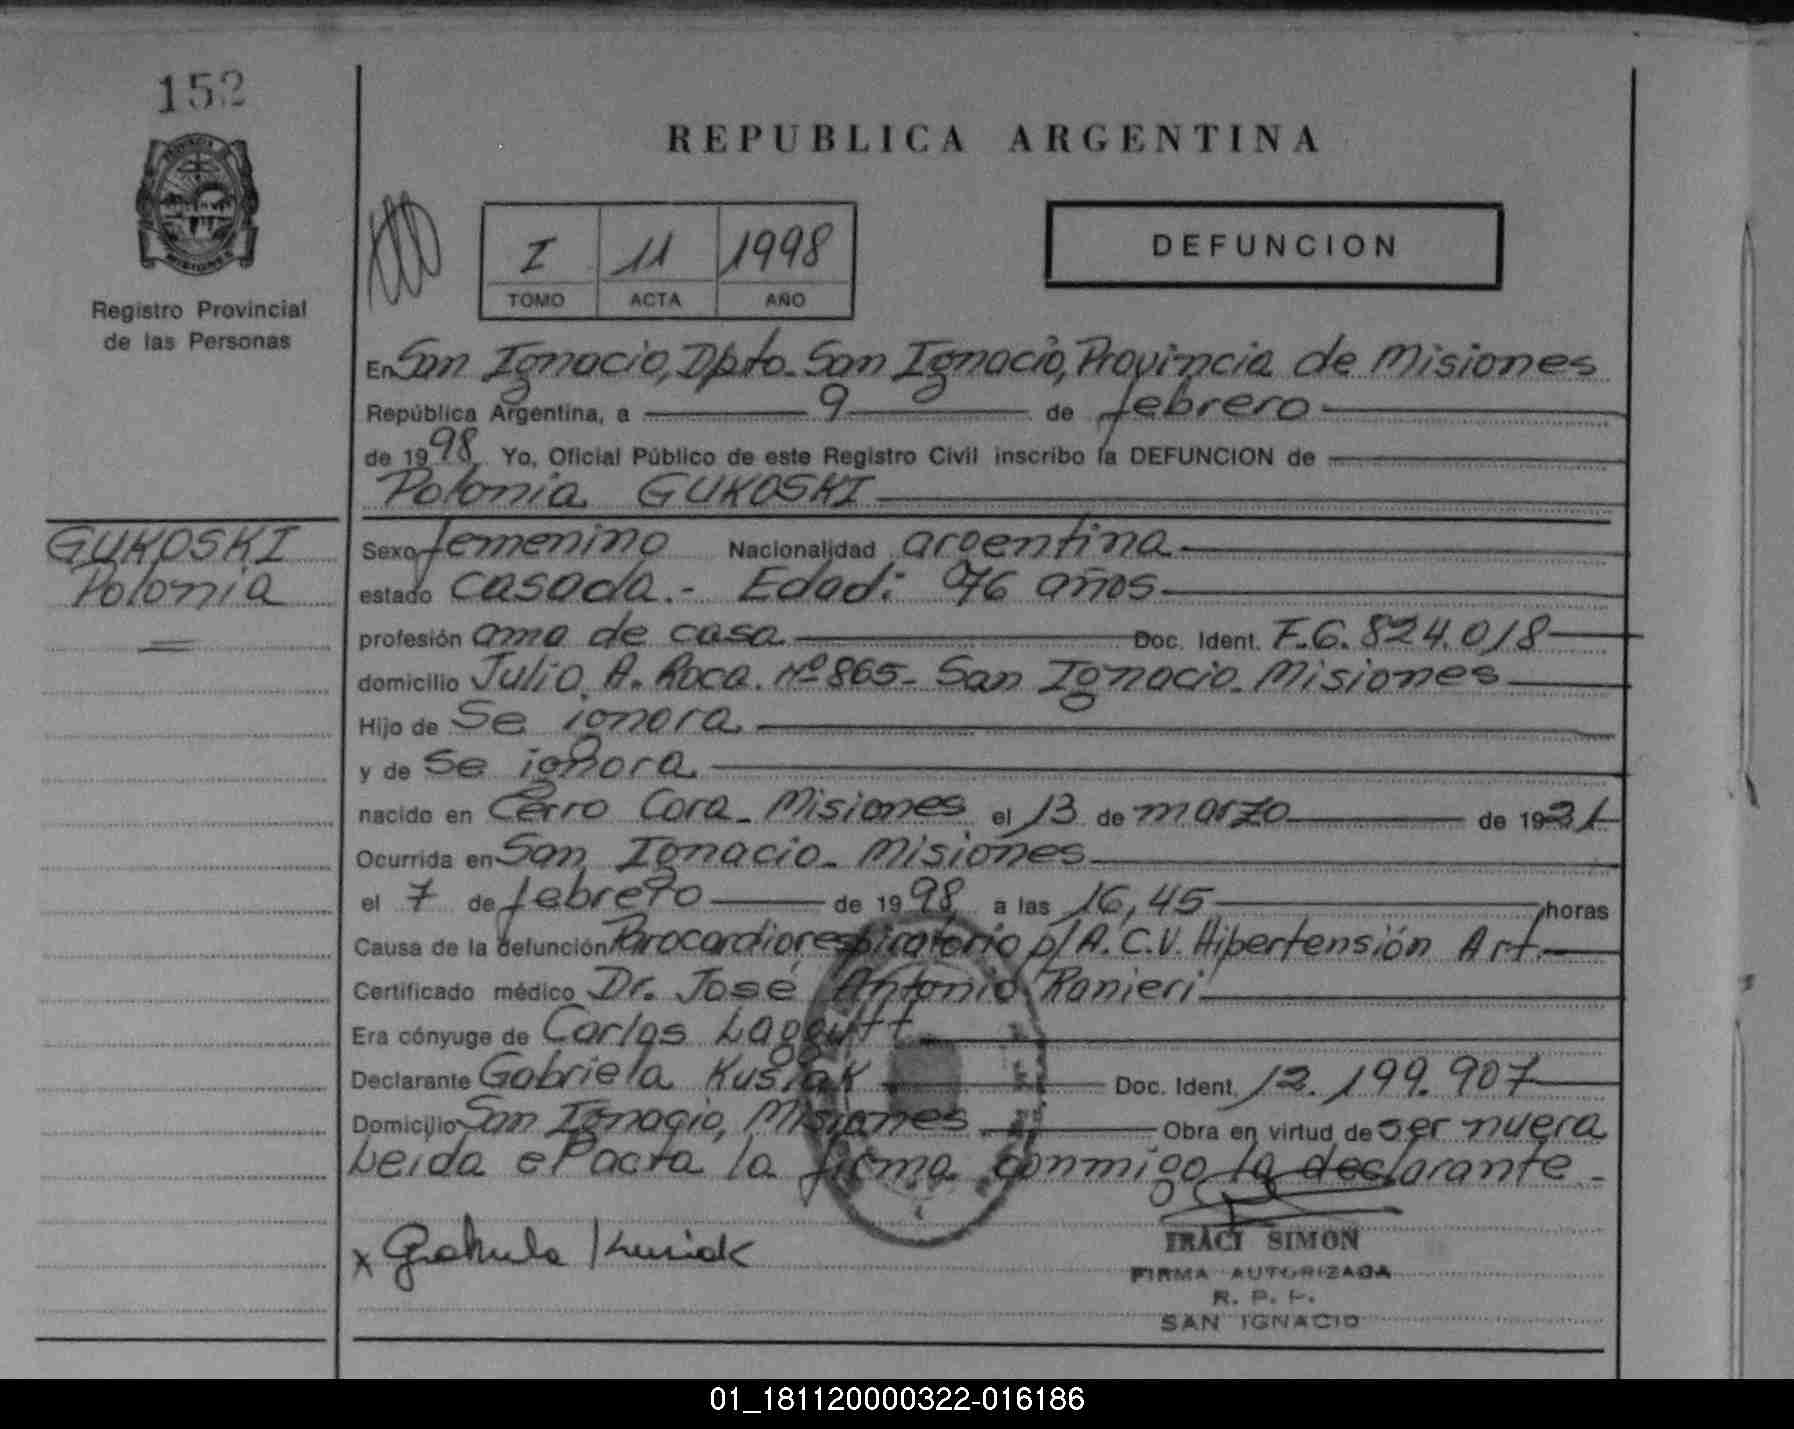 152
REPUBLICA ARGENTINA
I 11 1998
TOMO ACTA AÑO
DEFUNCION
Registro Provincial
de las Personas
En San Ignacio, Dpto. San Ignacio, Provincia de Misiones
República Argentina, a 9 de febrero
de 1998 Yo, Oficial Público de este Registro Civil inscribo la DEFUNCION de
Polonia GUKOSKI
GUKOSKI
Polonia
Sexo femenino Nacionalidad argentina
estado casada.- Edad: 76 años
profesión ama de casa Doc. Ident. F.6.824.018
domicilio Julio A. Roca. Nº 865- San Ignacio. Misiones
Hijo de Se ignora
y de Se ignora
nacido en Cerro Cora - Misiones el 13 de marzo de 19
Ocurrida en San Ignacio - Misiones
el 7 de febrero de 1998 a las 16,45 horas
Causa de la defunción Parocardiorespiratorio p/A.C.V. Hipertensión Art.
Certificado médico Dr. José Antonio Ranieri
Era cónyuge de Carlos
Declarante Gabriela Kusiak Doc. Ident. 12.199.907
Domicilio San Ignacio, Misiones Obra en virtud de ser nuera
Leida el acta la firma conmigo la declarante.-
x Gabriela Kusiak
IRACI SIMON
FIRMA AUTORIZADA
R. P. P.
SAN IGNACIO
01_181120000322-016186